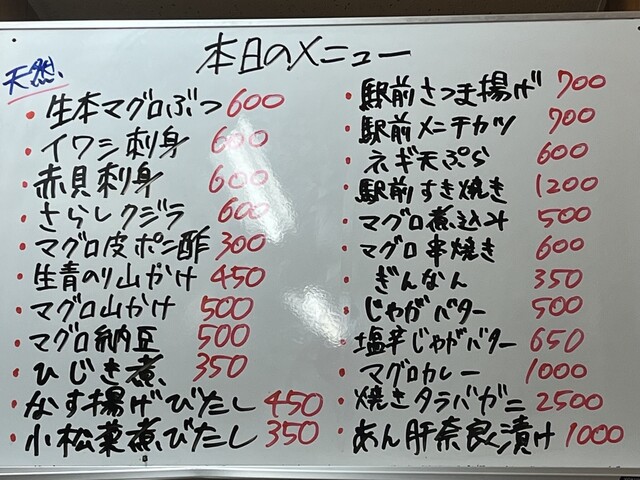 本日のメニュー
天然、
・生本マグロぶつ 600
・イワシ刺身 600
・赤貝刺身 600
・さらしクジラ 600
・マグロ皮ポン酢 300
・生青のり山かけ 450
・マグロ山かけ 500
・マグロ納豆 500
・ひじき煮、 350
・なす揚げびたし 450
・小松菜煮びたし 350
・駅前さつま揚げ 700
・駅前メンチカツ 700
・ネギ天ぷら 600
・駅前すき焼き 1200
・マグロ煮込み 500
・マグロ串焼き 600
・ぎんなん 350
・じゃがバター 500
・塩辛じゃがバター 650
・マグロカレー 1000
・焼きタラバガニ 2500
・あん肝奈良漬け 1000